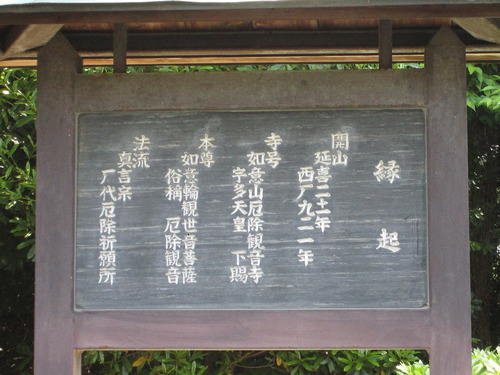 縁起
開山
延喜二十一年
西厂九二一年
寺号
如意山厄除観音寺
宇多天皇 下賜
本尊
如意輪観世音菩薩
俗称 厄除観音
法流
真言宗
厂代厄除祈願所